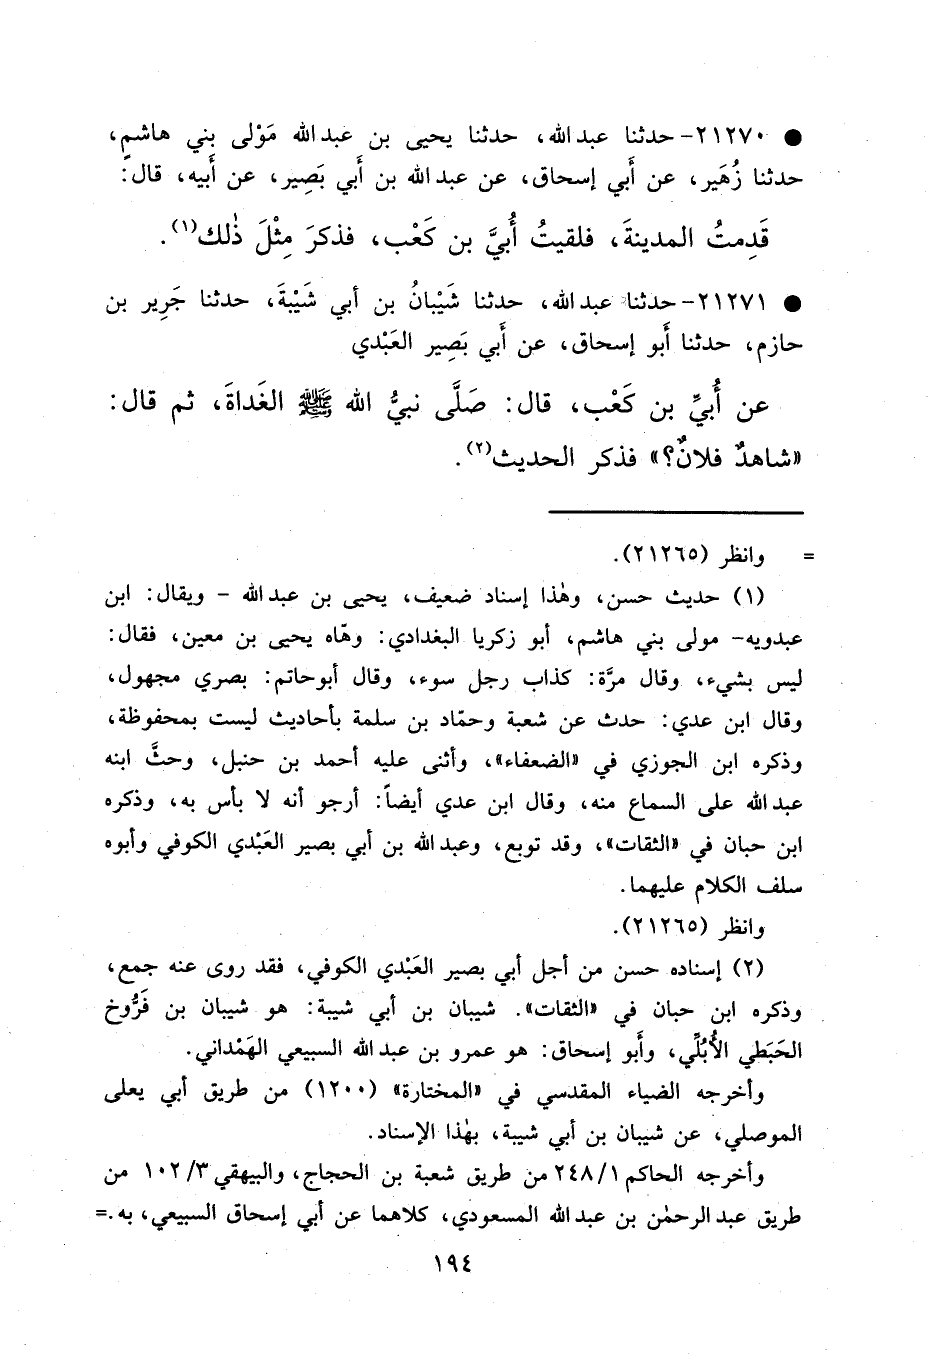 ● ٢١٢٧٠- حدثنا عبدالله، حدثنا يحيى بن عبدالله مَوْلى بني هاشمٍ،
حدثنا زُهَير، عن أَبي إسحاق، عن عبدالله بن أَبي بَصِير، عن أَبيه، قال:
قَدِمتُ المدينةَ، فلقيتُ أُبيَّ بن كَعْب، فذكرَ مِثْلَ ذٰلك(١).
● ٢١٢٧١- حدثنا عبدالله، حدثنا شَيْبانُ بن أبي شَيْبةَ، حدثنا جَرِير بن
حازم، حدثنا أَبو إسحاق، عن أَبي بَصِير العَبْدي
عن أُبيِّ بن كَعْب، قال: صَلَّى نبيُّ الله ﷺ الغَداةَ، ثم قال:
«شاهدٌ فلانٌ؟» فذكر الحديث(٢).
= وانظر (٢١٢٦٥).
(١) حديث حسن، وهٰذا إسناد ضعيف، يحيى بن عبدالله - ويقال: ابن
عبدويه- مولى بني هاشم، أبو زكريا البغدادي: وهّاه يحيى بن معين، فقال:
ليس بشيء، وقال مرَّة: كذاب رجل سوء، وقال أبوحاتم: بصري مجهول،
وقال ابن عدي: حدث عن شعبة وحمّاد بن سلمة بأحاديث ليست بمحفوظة،
وذكره ابن الجوزي في «الضعفاء»، وأثنى عليه أحمد بن حنبل، وحثَّ ابنه
عبدالله على السماع منه، وقال ابن عدي أيضاً: أرجو أنه لا بأس به، وذكره
ابن حبان في «الثقات»، وقد توبع، وعبدالله بن أبي بصير العَبْدي الكوفي وأبوه
سلف الكلام عليهما.
وانظر (٢١٢٦٥).
(٢) إسناده حسن من أجل أبي بصير العَبْدي الكوفي، فقد روى عنه جمع،
وذكره ابن حبان في «الثقات». شيبان بن أبي شيبة: هو شيبان بن فَرُّوخ
الحَبَطي الأُبُلِّي، وأَبو إسحاق: هو عمرو بن عبدالله السبيعي الهَمْداني.
وأخرجه الضياء المقدسي في «المختارة» (١٢٠٠) من طريق أبي يعلى
الموصلي، عن شيبان بن أبي شيبة، بهٰذا الإسناد.
وأخرجه الحاكم ٢٤٨/١ من طريق شعبة بن الحجاج، والبيهقي ١٠٢/٣ من
طريق عبدالرحمٰن بن عبدالله المسعودي، كلاهما عن أبي إسحاق السبيعي، به.=
١٩٤